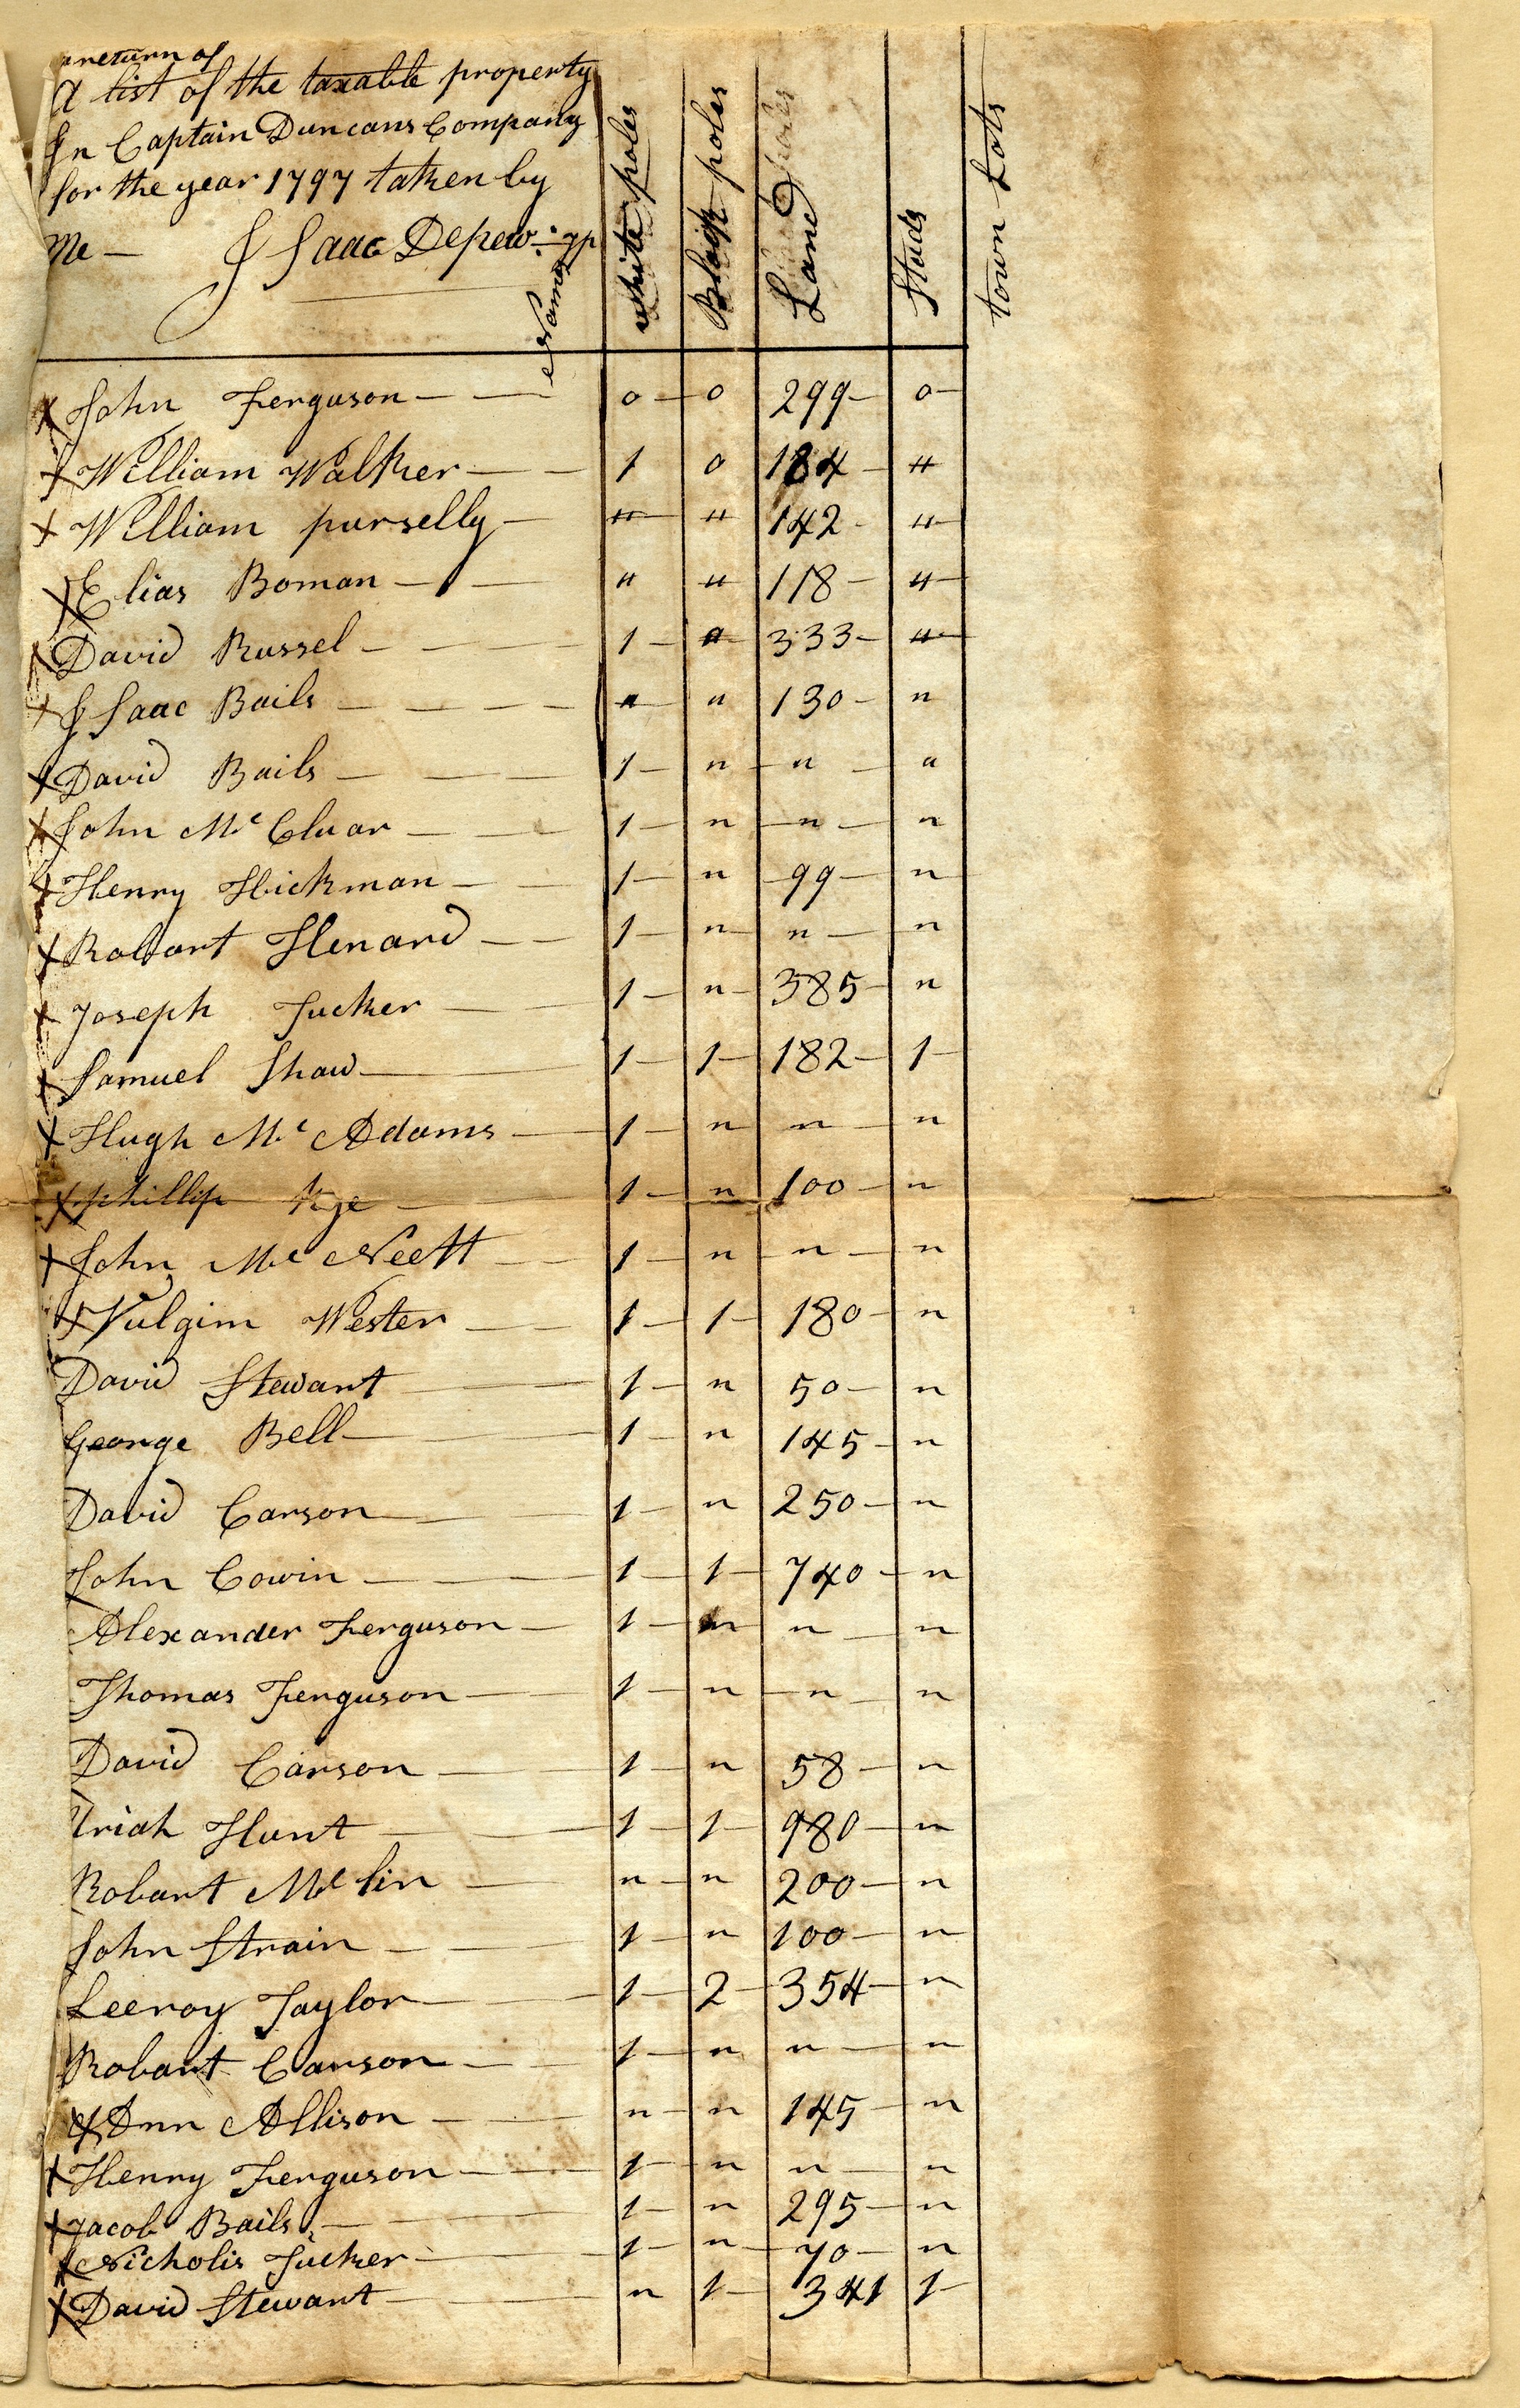 a return of
A list of the taxable property
In Captain Duncans Company
for the year 1797 taken by
Me — Isaac Depew — Jp
Names
white poles
Black poles
Land
Studs
town Lots
x John Ferguson — — 0 — 0 299 — 0 —
x William Walker — — 1 0 184 — "
x William purselly — " — " 142 — "
x Elias Boman — — " " 118 — "
x David Russel — — — 1 — " 333 — "
x Isaac Bails — — — — " — " 130 — "
x David Bails — — — 1 — " — " — "
x John Mc Cluar — — 1 — " — " — "
x Henry Hickman — — 1 — " — 99 — "
x Robart Henard — — 1 — " — " — "
x Joseph Tucker — — 1 — " — 385 — "
x Samuel Shaw — — 1 — 1 — 182 — 1 —
x Hugh Mc Adams — 1 — " — " — "
x phillip Kye — 1 — " 100 — "
x John Mc Neett — — 1 — " — " — "
x Vulgim Wester — — 1 — 1 — 180 — "
David Stewart — — 1 — " 50 — "
George Bell — — 1 — " 145 — "
David Carson — — 1 — " 250 — "
John Cowin — — — 1 — 1 — 740 — "
Alexander Ferguson — 1 — " — " — "
Thomas Ferguson — — 1 — " — " — "
David Carson — — 1 — " 58 — "
Uriah Hunt — — 1 — 1 — 980 — "
Robart Mc lin — — " — " 200 — "
John Strain — — — 1 — " 100 — "
Leeroy Taylor — — 1 — 2 — 354 — "
Robart Carson — — 1 — " " — "
x Ann Allison — — " — " 145 — "
x Henry Ferguson — — 1 — " " — "
x Jacob Bails — — 1 — " 295 — "
x Nicholis Tucker — — 1 — " — 70 — "
x David Stewart — — " 1 — 341 1 —